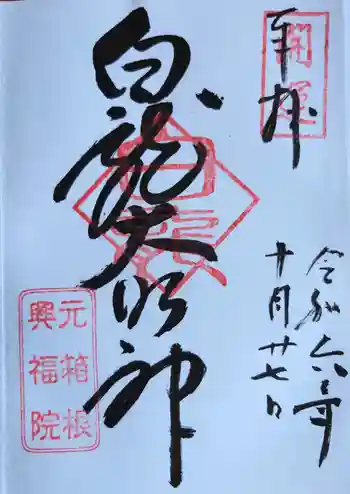 奉拝
開運
令和六年
十月廿七日
白龍大明神
元箱根
興福院